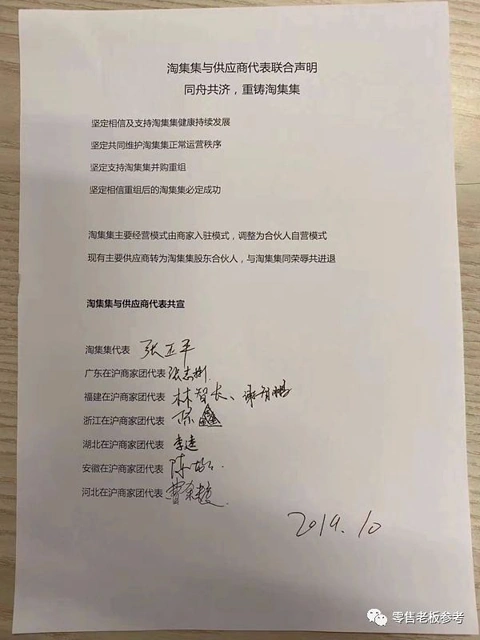 淘集集与供应商代表联合声明
同舟共济，重铸淘集集
坚定相信及支持淘集集健康持续发展
坚定共同维护淘集集正常运营秩序
坚定支持淘集集并购重组
坚定相信重组后的淘集集必定成功
淘集集主要经营模式由商家入驻模式，调整为合伙人自营模式
现有主要供应商转为淘集集股东合伙人，与淘集集同荣辱共进退
淘集集与供应商代表共宣
淘集集代表 张正平
广东在沪商家团代表
福建在沪商家团代表 林智长、
浙江在沪商家团代表 陈
湖北在沪商家团代表
安徽在沪商家团代表 陈
河北在沪商家团代表 曹
2019.10
零售老板参考